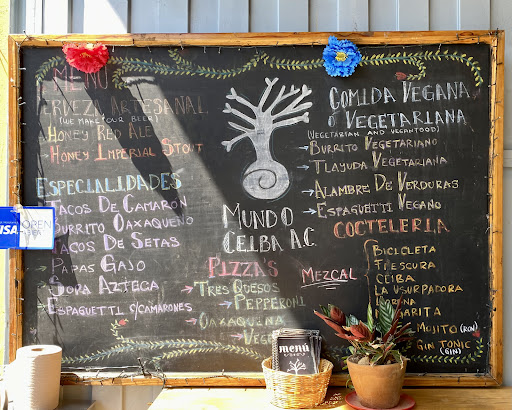 MENU
CERVEZA ARTESANAL
(WE MAKE YOUR BEER)
HONEY RED ALE
HONEY IMPERIAL STOUT
ESPECIALIDADES
TACOS DE CAMARON
BURRITO OAXAQUEÑO
TACOS DE SETAS
PAPAS GAJO
SOPA AZTECA
ESPAGUETTI C/CAMARONES
MUNDO
CEIBA A.C.
PIZZAS
TRES QUESOS
PEPPERONI
OAXAQUEÑA
MEZCAL
COMIDA VEGANA
O VEGETARIANA
(VEGETARIAN AND VEGAN FOOD)
BURRITO VEGETARIANO
TLAYUDA VEGETARIANA
ALAMBRE DE VERDURAS
ESPAGUETTI VEGANO
COCTELERIA
BICICLETA
FRESCURA
CEIBA
LA USURPADORA
MOJITO (RON)
GIN TONIC (GIN)
VISA
OPEN
menú